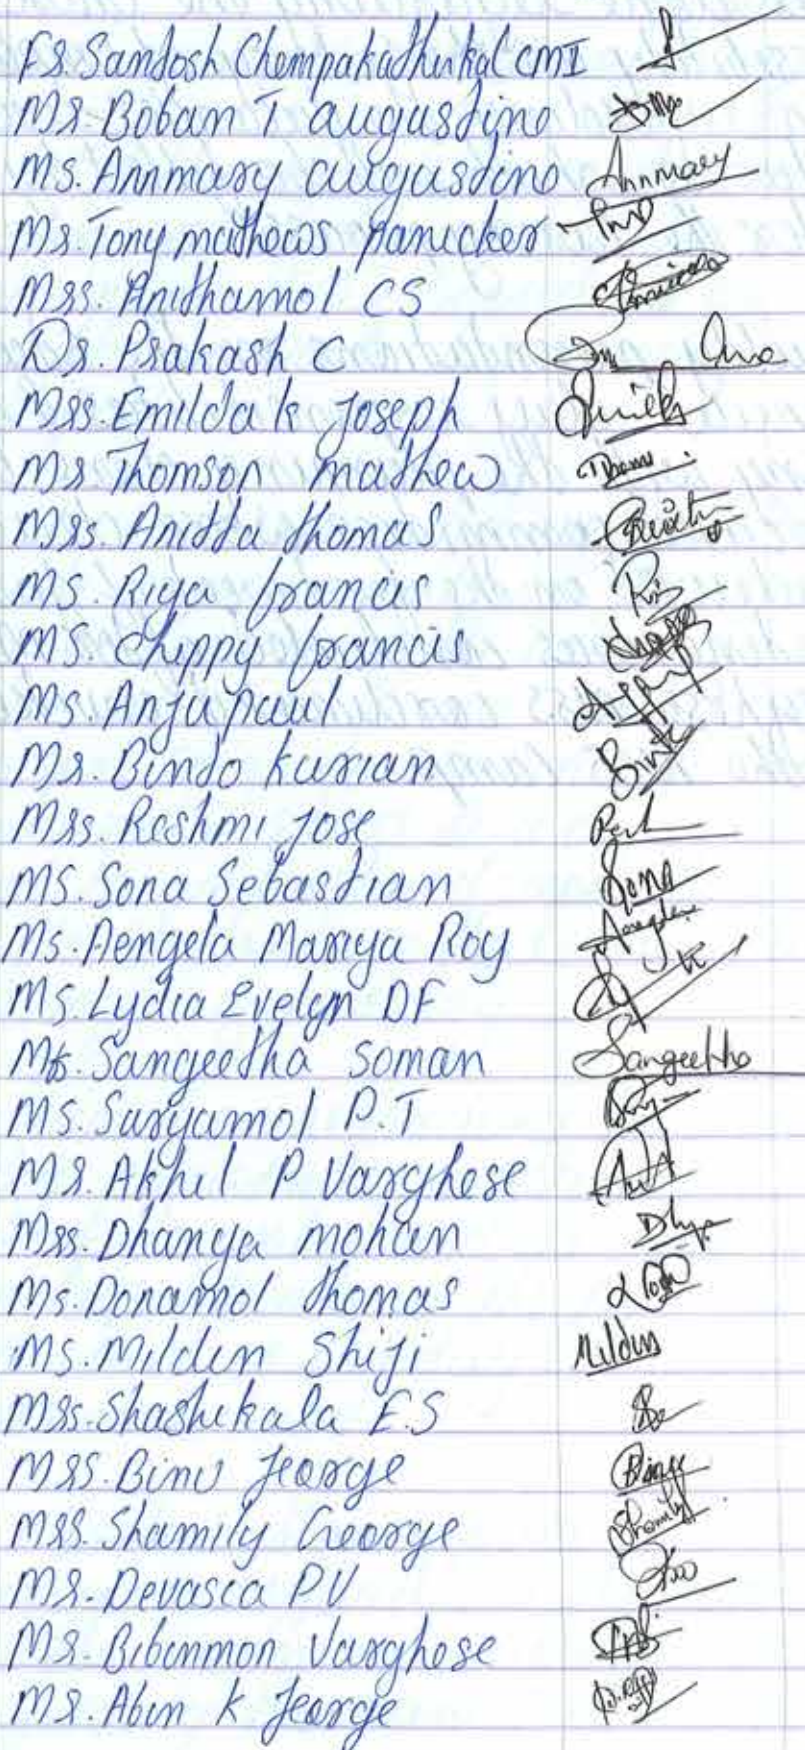 Fr. Santosh Chempakathinkal CMI
Mr. Boban T augustine
Ms. Annmary augustine Annmary
Mr. Tony mathews panicker
Mrs. Anithamol CS
Dr. Prakash C
Mrs. Emilda k Joseph
Mr Thomson mathew
Mrs. Anitta thomas
Ms. Riya francis
Ms. Chippy francis
Ms. Anju paul
Mr. Binto kurian
Mrs. Reshmi Jose
Ms. Sona Sebastian Sona
Ms. Aengela Mariya Roy
Ms. Lydia Evelyn DF
Ms. Sangeetha Soman Sangeetha
Ms. Suryamol P.T
Mr. Akhil P Varghese
Mrs. Dhanya mohan
Ms. Donamol thomas
Ms. Milden Shiji Milden
Mrs. Shashikala E.S
Mrs. Binu Jeorge
Mrs. Shamily George Shamily
Mr. Devasia PV
Mr. Bibinmon Varghese
Mr. Abin k Jeorge